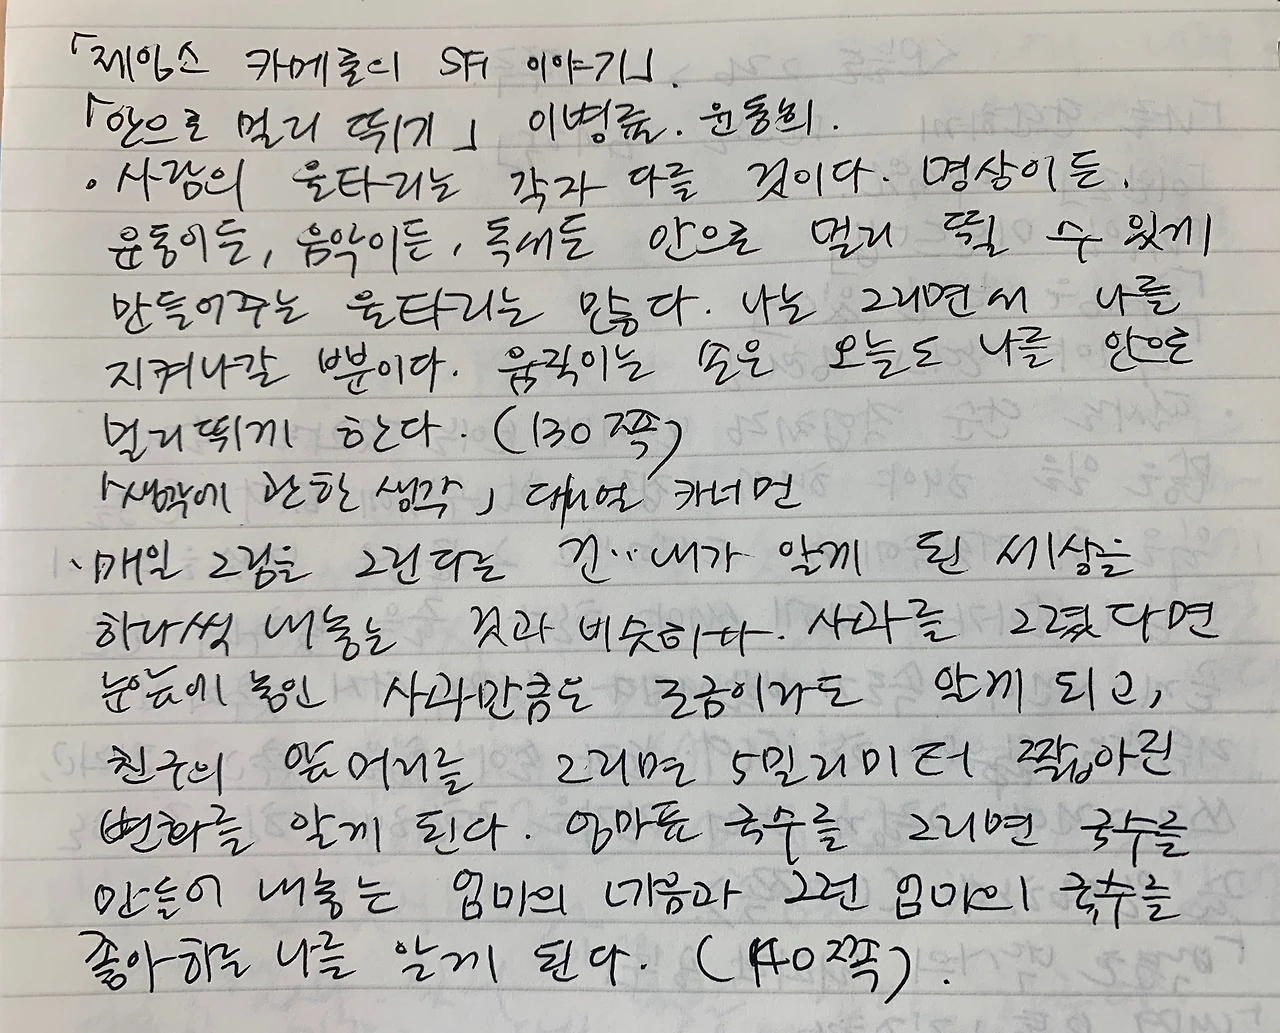 「제임스 카메론의 SF 이야기」.
「안으로 멀리 뛰기」 이병률. 윤동희.
· 사람의 울타리는 각자 다를 것이다. 명상이든,
운동이든, 음악이든, 독서든 안으로 멀리 뛸 수 있게
만들어주는 울타리는 많다. 나는 그리면서 나를
지켜나갈 뿐이다. 움직이는 손은 오늘도 나를 안으로
멀리뛰게 한다. (130쪽)
「생각에 관한 생각」 대니얼 카너먼
· 매일 그림을 그린다는 건‥내가 알게 된 세상을
하나씩 내놓는 것과 비슷하다. 사과를 그렸다면
눈앞에 놓인 사과만큼은 조금이라도 알게 되고,
친구의 앞머리를 그리면 5밀리미터 짧아진
변화를 알게 된다. 엄마표 국수를 그리면 국수를
만들어 내놓는 엄마의 마음과 그런 엄마의 국수를
좋아하는 나를 알게 된다. (140쪽).